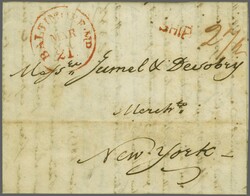 BALTIMORE MD
MAR
21
SHIP
27
Messrs Jumel & Desobry
Merchts
New-York